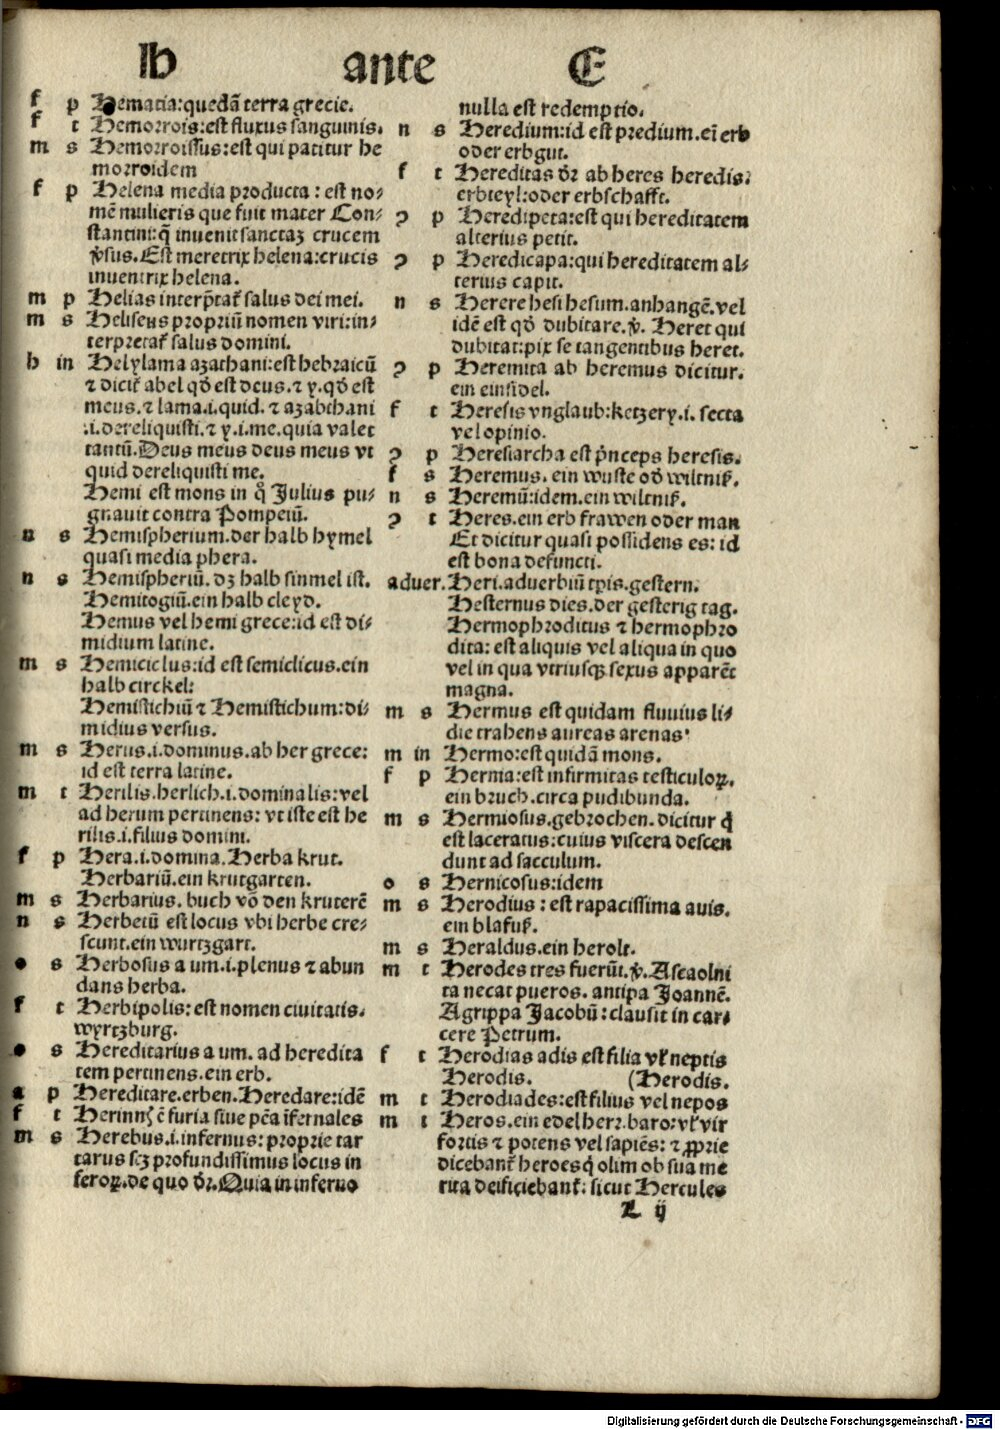 H ante E
f p Hematia:quedā terra grecie.
f t Hemorrois:est fluxus sanguinis.
m s Hemorroissus:est qui patitur he
morroidem
f p Helena media producta : est no⸗
mē mulieris que fuit mater Con⸗
stantini:q̄ inuenit sanctaʒ crucem
v̉sus.Est meretrix helena:crucis
inuentrix helena.
m p Helias interp̄tat᷑ salus dei mei.
m s Heliseus propriū nomen viri:in⸗
terpretat᷑ salus domini.
h in Helylama azathani:est hebraicū
⁊ dicit᷑ abel qđ est deus.⁊ y.qđ est
meus.⁊ lama.i.quid.⁊ azabthani
.i.dereliquisti.⁊ y.i.me.quia valet
tantū.Deus meus deus meus vt
quid dereliquisti me.
Hemi est mons in q̊ Julius pu⸗
gnauit contra Pompeiū.
n s Hemispherium.der halb hymel
quasi media phera.
n s Hemispheriū.dʒ halb sinmel ist.
Hemitogiū.ein halb cleyd.
Hemus vel hemi grece:id est di⸗
midium latine.
m s Hemiciclus:id est semiclicus.ein
halb circkel:
Hemistichiū ⁊ Hemistichum:di⸗
midius versus.
m s Herus.i.dominus.ab her grece:
id est terra latine.
m t Herilis.herlich.i.dominalis:vel
ad herum pertinens: vt iste est he
rilis.i.filius domini.
f p Hera.i.domina.Herba krut.
Herbariū.ein krutgarten.
m s Herbarius. buch vō den kruterē
n s Herbetū est locus vbi herbe cre⸗
scunt.ein wurtzgart.
o s Herbosus a um.i.plenus ⁊ abun
dans herba.
f t Herbipolis: est nomen ciuitatis.
wyrtzburg.
o s Hereditarius a um. ad heredita
tem pertinens.ein erb.
a p Hereditare.erben.Heredare:idē
f t Herinnꝭ ē furia siue pēa īfernales
m s Herebus.i.infernus: proprie tar
tarus scʒ profundissimus locus in
feroꝝ.de quo dr̄.Quia in inferno
nulla est redemptio.
n s Heredium:id est predium.eī erb
oder erbgut.
f t Hereditas dr̄ ab heres heredis:
erbteyl:oder erbschafft.
ꝯ p Heredipeta:est qui hereditatem
alterius petit.
ꝯ p Heredicapa:qui hereditatem al⸗
terius capit.
n s Herere hesi hesum.anhangē.vel
idē est qđ dubitare.v̉. Heret qui
dubitat:pix se tangentibus heret.
ꝯ p Heremita ab heremus dicitur.
ein einsidel.
f t Heresis vnglaub:ketzery.i. secta
vel opinio.
ꝯ p Heresiarcha est p̄nceps heresis.
f s Heremus. ein wuste oď wiltniß.
n s Heremū:idem.ein wiltniß.
ꝯ t Heres.ein erb frawen oder man
Et dicitur quasi possidens es: id
est bona defuncti.
aduer.Heri.aduerbiū tp̄is.gestern.
Hesternus dies.der gesterig tag.
Hermophroditus ⁊ hermophro
dita: est aliquis vel aliqua in quo
vel in qua vtriusqꝫ sexus apparēt
magna.
m s Hermus est quidam fluuius li⸗
die trahens aureas arenas'
m in Hermo:est quidā mons.
f p Hernia:est infirmitas testiculoꝝ.
ein bruch.circa pudibunda.
m s Herniosus.gebrochen. dicitur q̄
est laceratus:cuius viscera descen
dunt ad sacculum.
o s Hernicosus:idem
m s Herodius : est rapacissima auis.
ein blafuß.
m s Heraldus.ein herolt.
m t Herodes tres fuerūt.v̉.Ascaolni
ta necat pueros. antipa Joannē.
Agrippa Jacobū:clausit in car⸗
cere Petrum.
f t Herodias adis est filia vl̓ neptis
Herodis. (Herodis.
m t Herodiades:est filius vel nepos
m t Heros.ein edel herr.baro:vl̓ vir
fortis ⁊ potens vel sapiēs: ⁊ ꝓprie
dicebant᷑ heroes q̇ olim ob sua me
rita deificiebant᷑: sicut Hercules
L ij
Digitalisierung gefördert durch die Deutsche Forschungsgemeinschaft - DFG